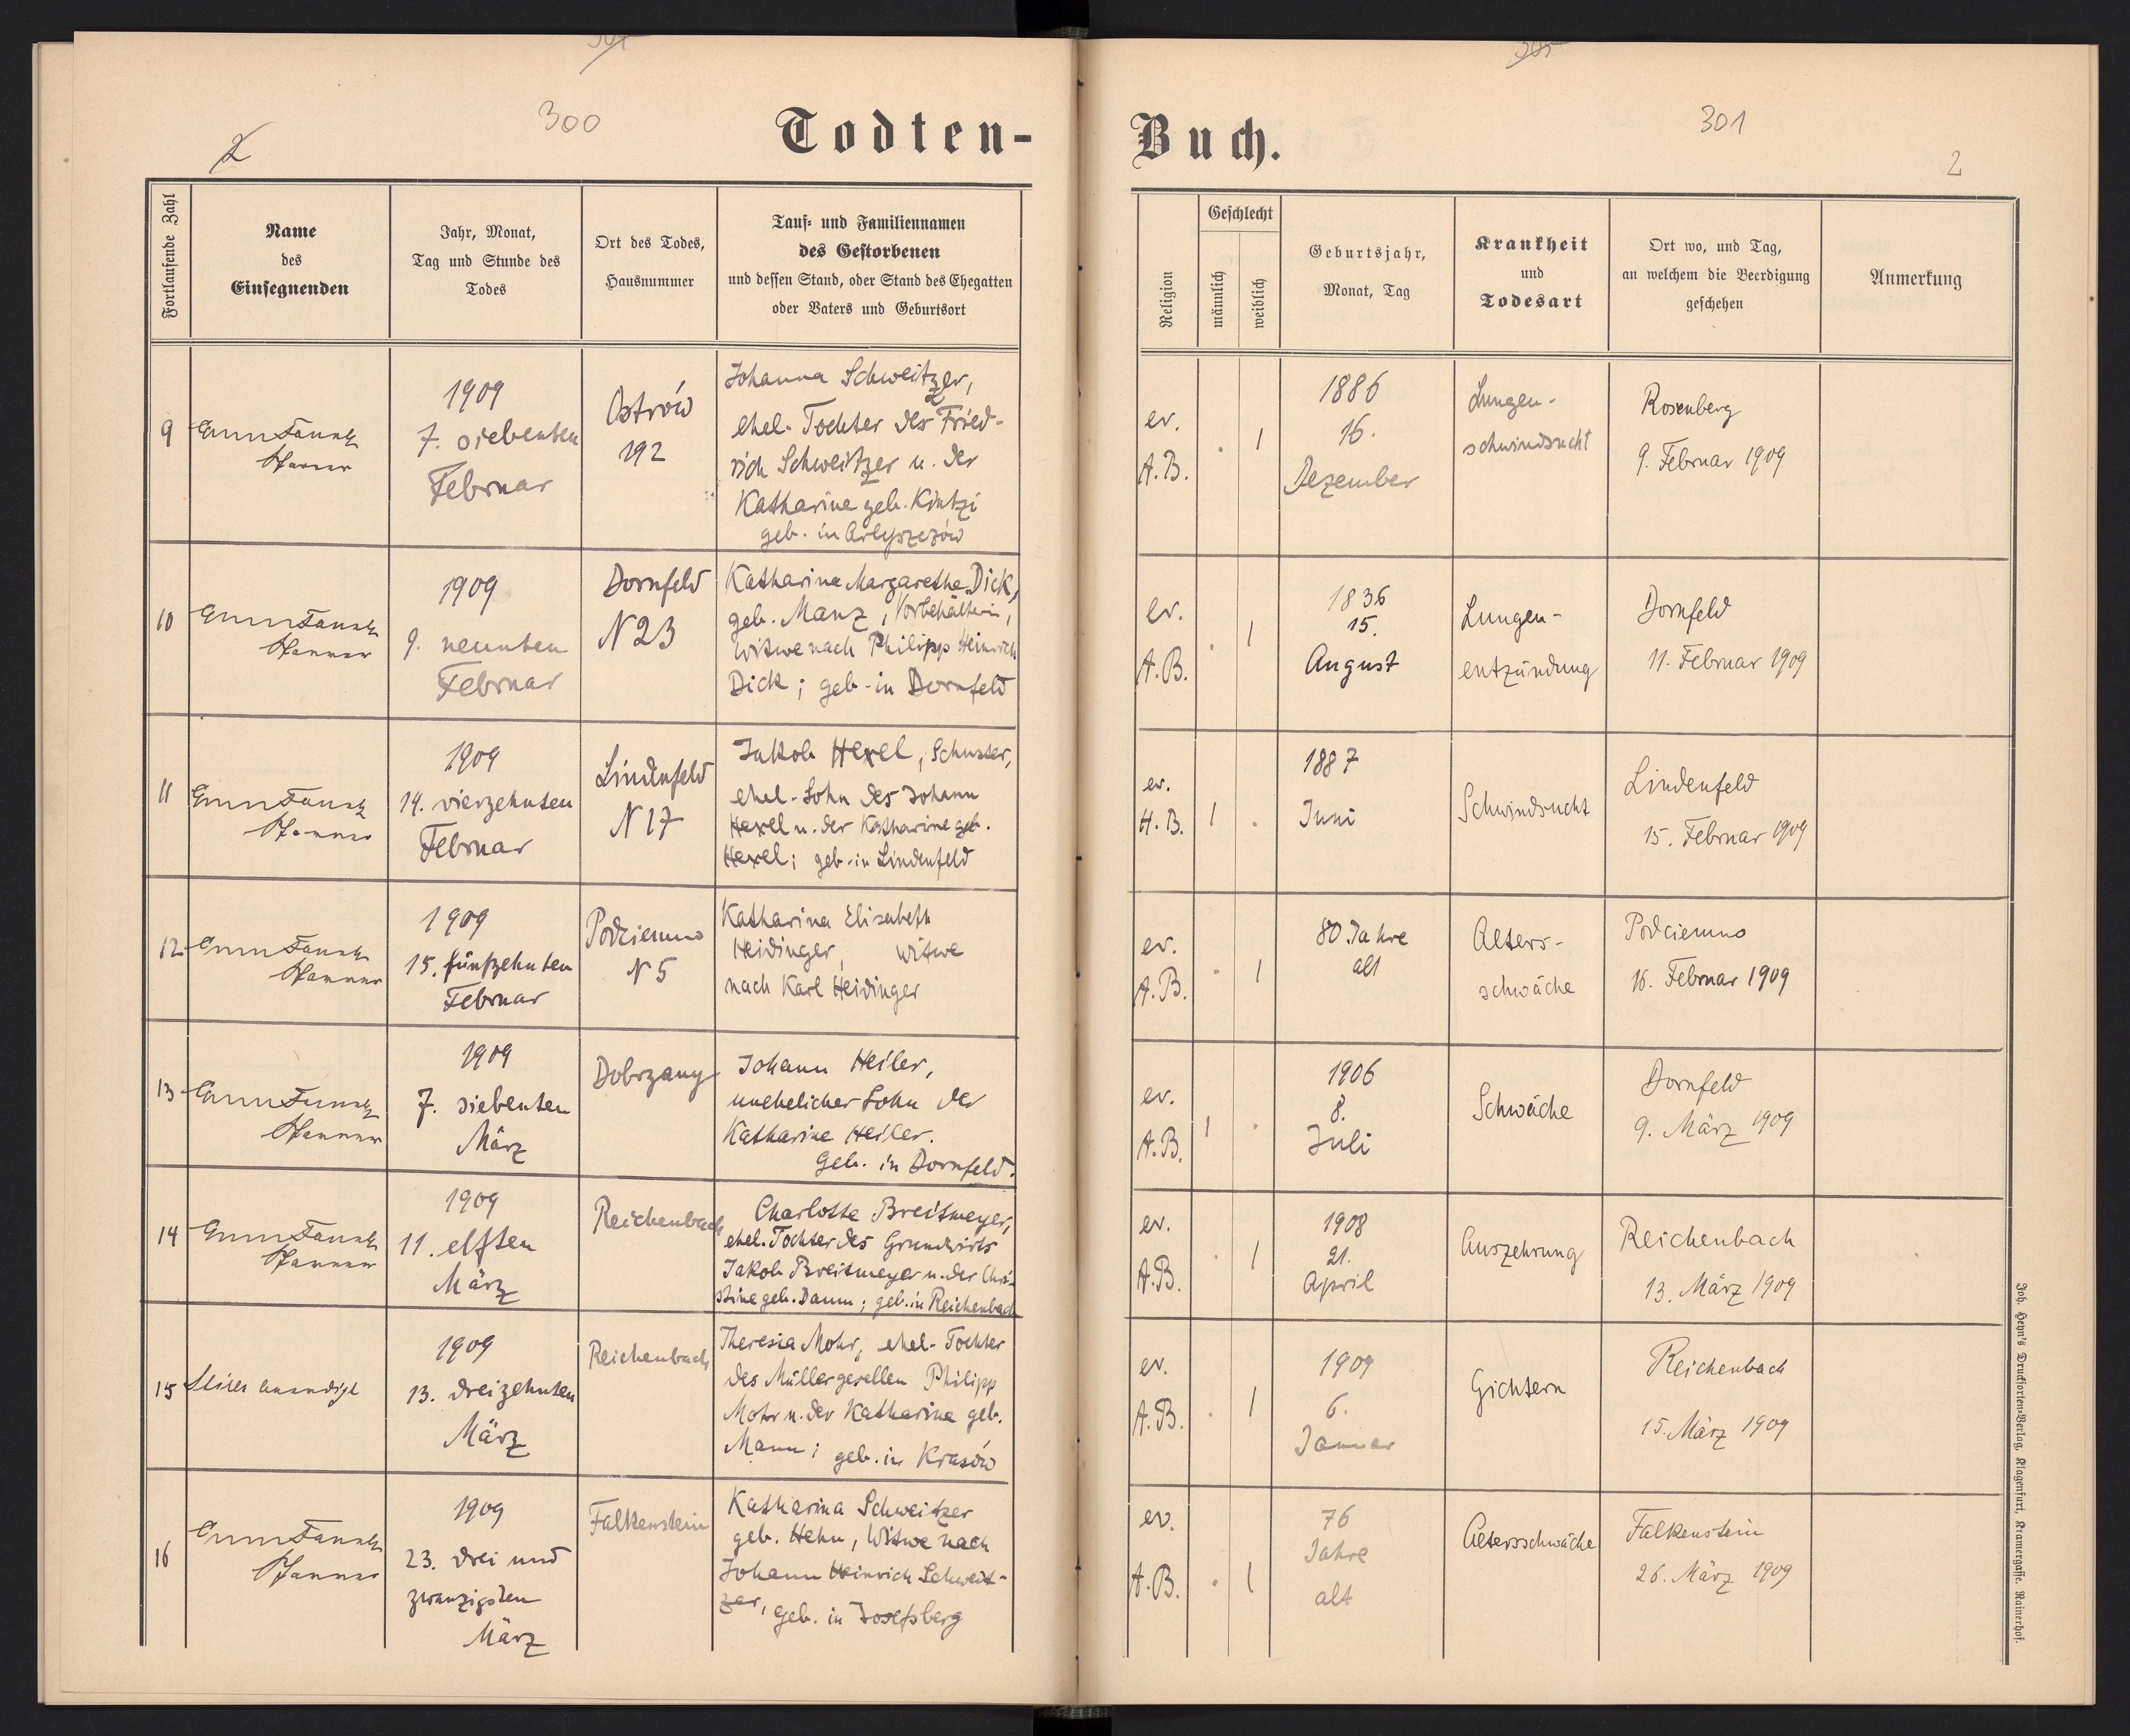 300
Todten-
Fortlaufende Zahl
Name
des
Einsegnenden
Jahr, Monat,
Tag und Stunde des
Todes
Ort des Todes,
Hausnummer
Tauf- und Familiennamen
des Gestorbenen
und dessen Stand, oder Stand des Ehegatten
oder Vaters und Geburtsort
9
Pfarrer
1909
7. siebenten
Februar
Ostrów
192
Johanna Schweitzer,
ehel. Tochter des Fried-
rich Schweitzer u. der
Katharine geb. Kintzi
geb. in
10
Pfarrer
1909
9. neunten
Februar
Dornfeld
N 23
Katharina Margarethe Dick,
geb. Manz, Vorbehälterin,
Witwe nach Philipp Heinrich
Dick; geb. in Dornfeld
11
Pfarrer
1909
14. vierzehnten
Februar
Lindenfeld
N 17
Jakob Hexel, Schuster,
ehel. Sohn des Johann
Hexel u. der Katharine geb.
Hexel; geb. in Lindenfeld
12
Pfarrer
1909
15. fünfzehnten
Februar
Podciemno
N 5
Katharina Elisabeth
Heidinger, Witwe
nach Karl Heidinger
13
Pfarrer
1909
7. siebenten
März
Dobrzany
Johann Heiler,
unehelicher Sohn der
Katharine Heiler.
Geb. in Dornfeld.
14
Pfarrer
1909
11. elften
März
Reichenbach
Charlotte Breitmeyer,
ehel. Tochter des Grundwirts
Jakob Breitmeyer u. der Chri-
stine geb. Daum; geb. in Reichenbach
15
1909
13. dreizehnten
März
Reichenbach
Theresia Mohr, ehel. Tochter
des Müllergesellen Philipp
Mohr u. der Katharine geb.
Mann; geb. in Krasów
16
Pfarrer
1909
23. drei und
zwanzigsten
März
Falkenstein
Katharina Schweitzer
geb. Hehn, Witwe nach
Johann Heinrich Schweit-
zer, geb. in Josefsberg
301
2
Buch.
Religion
Geschlecht
männlich
weiblich
Geburtsjahr,
Monat, Tag
Krankheit
und
Todesart
Ort wo, und Tag,
an welchem die Beerdigung
geschehen
Anmerkung
ev.
A.B.
. 1
1886
16.
Dezember
Lungen-
schwindsucht
Rosenberg
9. Februar 1909
ev.
A.B.
. 1
1836
15.
August
Lungen-
entzündung
Dornfeld
11. Februar 1909
ev.
H.B.
1 .
1887
Juni
Schwindsucht
Lindenfeld
15. Februar 1909
ev.
A.B.
. 1
80 Jahre
alt
Alters-
schwäche
Podciemno
16. Februar 1909
ev.
A.B.
1 .
1906
8.
Juli
Schwäche
Dornfeld
9. März 1909
ev.
A.B.
. 1
1908
21.
April
Auszehrung
Reichenbach
13. März 1909
ev.
A.B.
. 1
1909
6.
Januar
Gichtern
Reichenbach
15. März 1909
ev.
A.B.
. 1
76
Jahre
alt
Altersschwäche
Falkenstein
26. März 1909
Joh. Heyn's Drucksorten-Verlag, Klagenfurt, Kramergasse, Rainerhof.